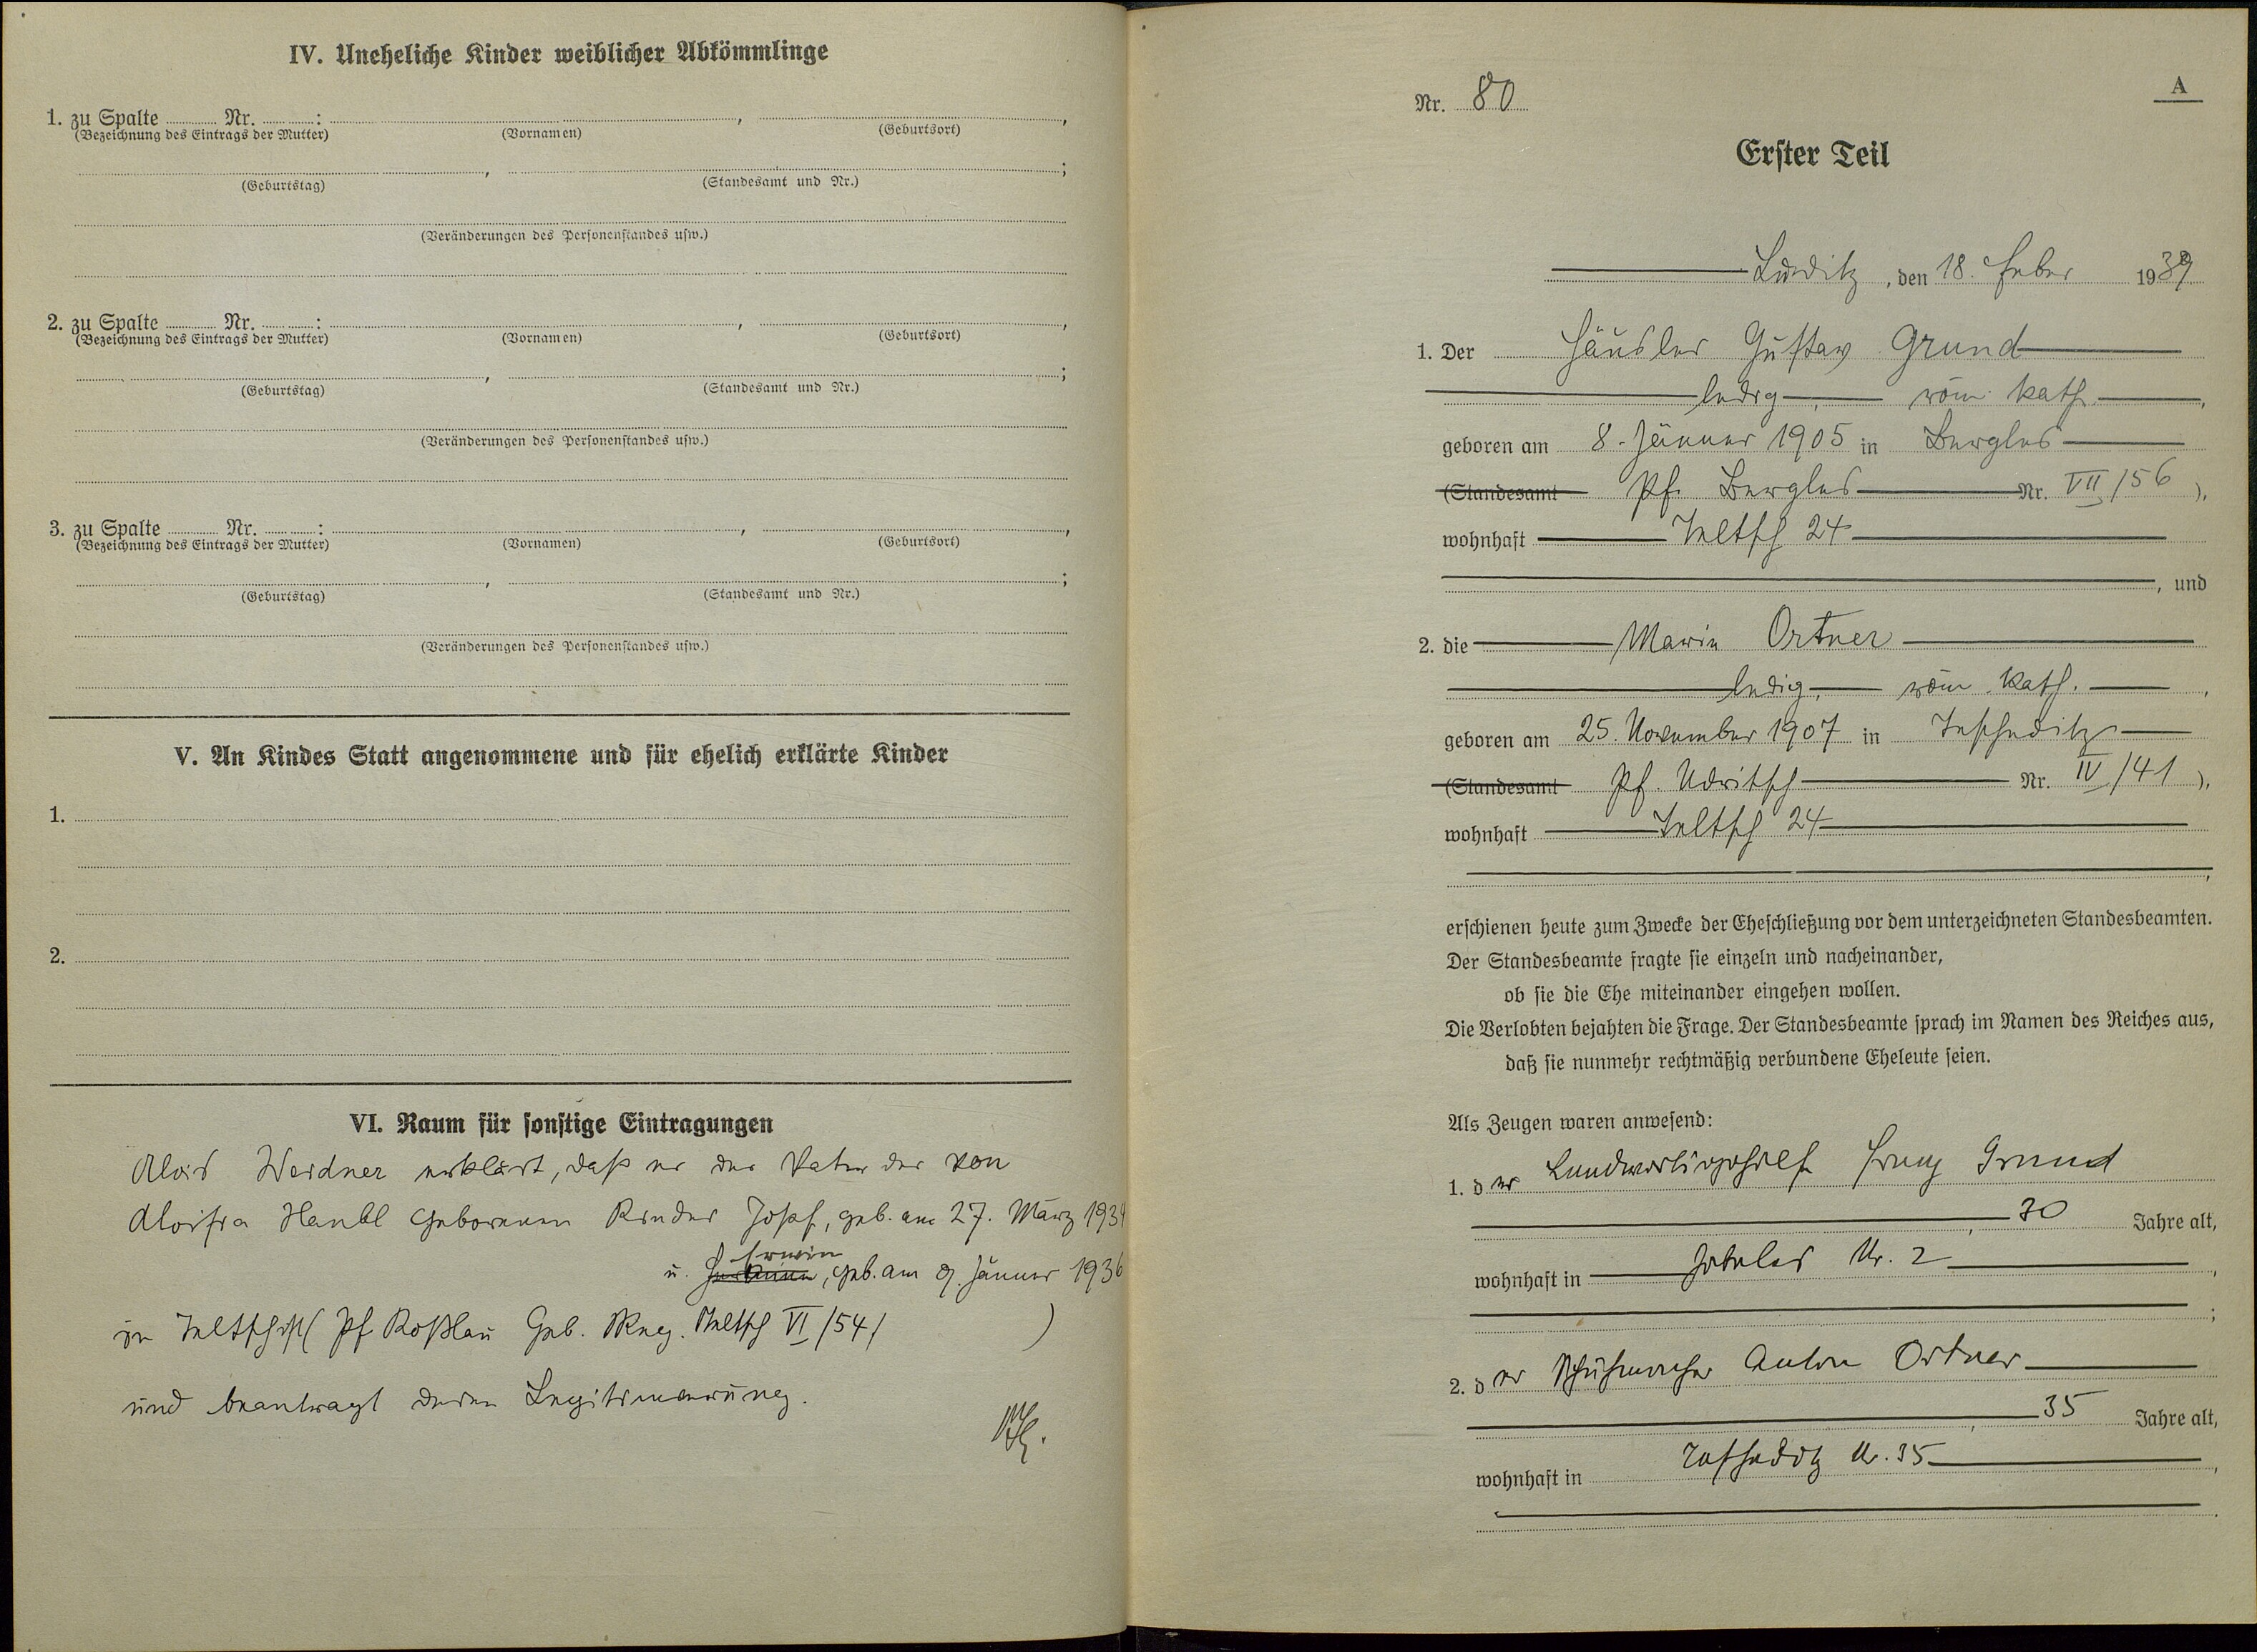 IV. Uneheliche Kinder weiblicher Abkömmlinge
1. zu Spalte ........ Nr. ........: ........, ........,
(Bezeichnung des Eintrags der Mutter) (Vornamen) (Geburtsort)
(Geburtstag) (Standesamt und Nr.)
(Veränderungen des Personenstandes usw.)
2. zu Spalte ........ Nr. ........: ........, ........,
(Bezeichnung des Eintrags der Mutter) (Vornamen) (Geburtsort)
(Geburtstag) (Standesamt und Nr.)
(Veränderungen des Personenstandes usw.)
3. zu Spalte ........ Nr. ........: ........, ........,
(Bezeichnung des Eintrags der Mutter) (Vornamen) (Geburtsort)
(Geburtstag) (Standesamt und Nr.)
(Veränderungen des Personenstandes usw.)
V. An Kindes Statt angenommene und für ehelich erklärte Kinder
1.
2.
VI. Raum für sonstige Eintragungen
Alois Weidner erklärt, daß er der Vater der von
Aloisia Hankl geborenen Kinder Josef, geb. am 27. März 1934
Erwin
u. , geb. am 9. Jänner 1936
in Jeltsch Pf. Koßlau Geb. VI/54/ )
und beantragt deren Legitimierung.
Nr. 80
A
Erster Teil
Luditz, den 18. Feber 1939
1. Der Häusler Gustav Grund
ledig, röm kath.,
geboren am 8. Jänner 1905 in Bergles
(Standesamt Pf. Bergles Nr. VII/56),
wohnhaft Jeltsch 24
, und
2. die Maria Ortner
ledig, röm. kath.,
geboren am 25. November 1907 in Teschetitz
(Standesamt Pf. Udritsch Nr. IV/41),
wohnhaft Jeltsch 24
,
erschienen heute zum Zwecke der Eheschließung vor dem unterzeichneten Standesbeamten.
Der Standesbeamte fragte sie einzeln und nacheinander,
ob sie die Ehe miteinander eingehen wollen.
Die Verlobten bejahten die Frage. Der Standesbeamte sprach im Namen des Reiches aus,
daß sie nunmehr rechtmäßig verbundene Eheleute seien.
Als Zeugen waren anwesend:
1. der Franz Grund
, 30 Jahre alt,
wohnhaft in Nr. 2,
;
2. der Schuhmacher Anton Ortner
, 35 Jahre alt,
wohnhaft in Nr. 35,